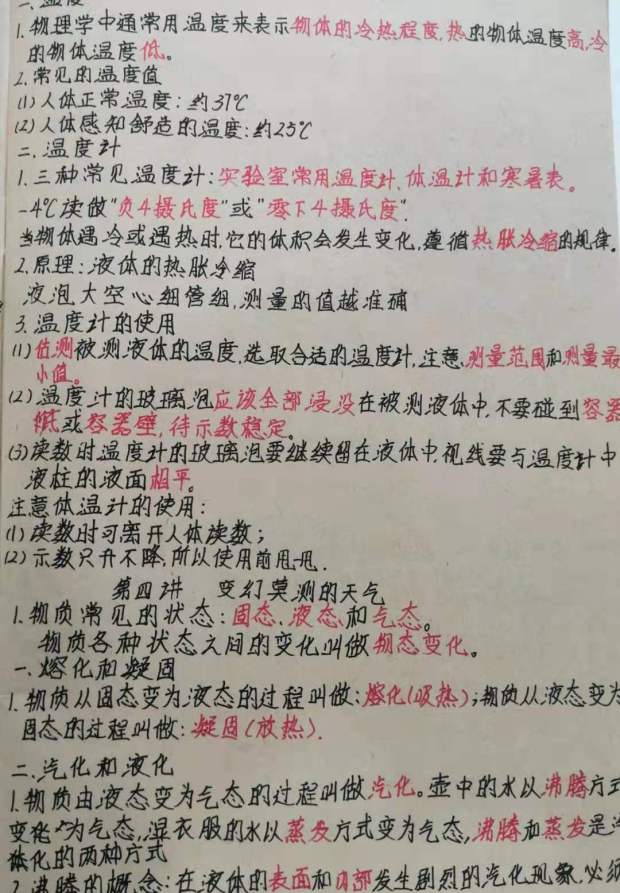 一、温度
1.物理学中通常用温度来表示物体的冷热程度,热的物体温度高,冷
的物体温度低。
2.常见的温度值
(1)人体正常温度:约37℃
(2)人体感知舒适的温度:约25℃
二、温度计
1.三种常见温度计:实验室常用温度计、体温计和寒暑表。
-4℃读做"负4摄氏度"或"零下4摄氏度".
当物体遇冷或遇热时,它的体积会发生变化,遵循热胀冷缩的规律。
2.原理:液体的热胀冷缩
液泡大空心细管细,测量的值越准确
3.温度计的使用
(1)估测被测液体的温度,选取合适的温度计,注意测量范围和测量最
小值。
(2)温度计的玻璃泡应该全部浸没在被测液体中,不要碰到容器
底或容器壁,待示数稳定。
(3)读数时温度计的玻璃泡要继续留在液体中,视线要与温度计中
液柱的液面相平。
注意体温计的使用:
(1)读数时可离开人体读数;
(2)示数只升不降,所以使用前甩一甩.
第四讲 变幻莫测的天气
1.物质常见的状态:固态、液态和气态。
物质各种状态之间的变化叫做物态变化。
一、熔化和凝固
1.物质从固态变为液态的过程叫做:熔化(吸热);物质从液态变为
固态的过程叫做:凝固(放热).
二、汽化和液化
1.物质由液态变为气态的过程叫做汽化。壶中的水以沸腾方式
变化为气态,湿衣服的水以蒸发方式变为气态,沸腾和蒸发是汽
体化的两种方式
2.沸腾的概念:在液体的表面和内部发生剧烈的汽化现象,必须